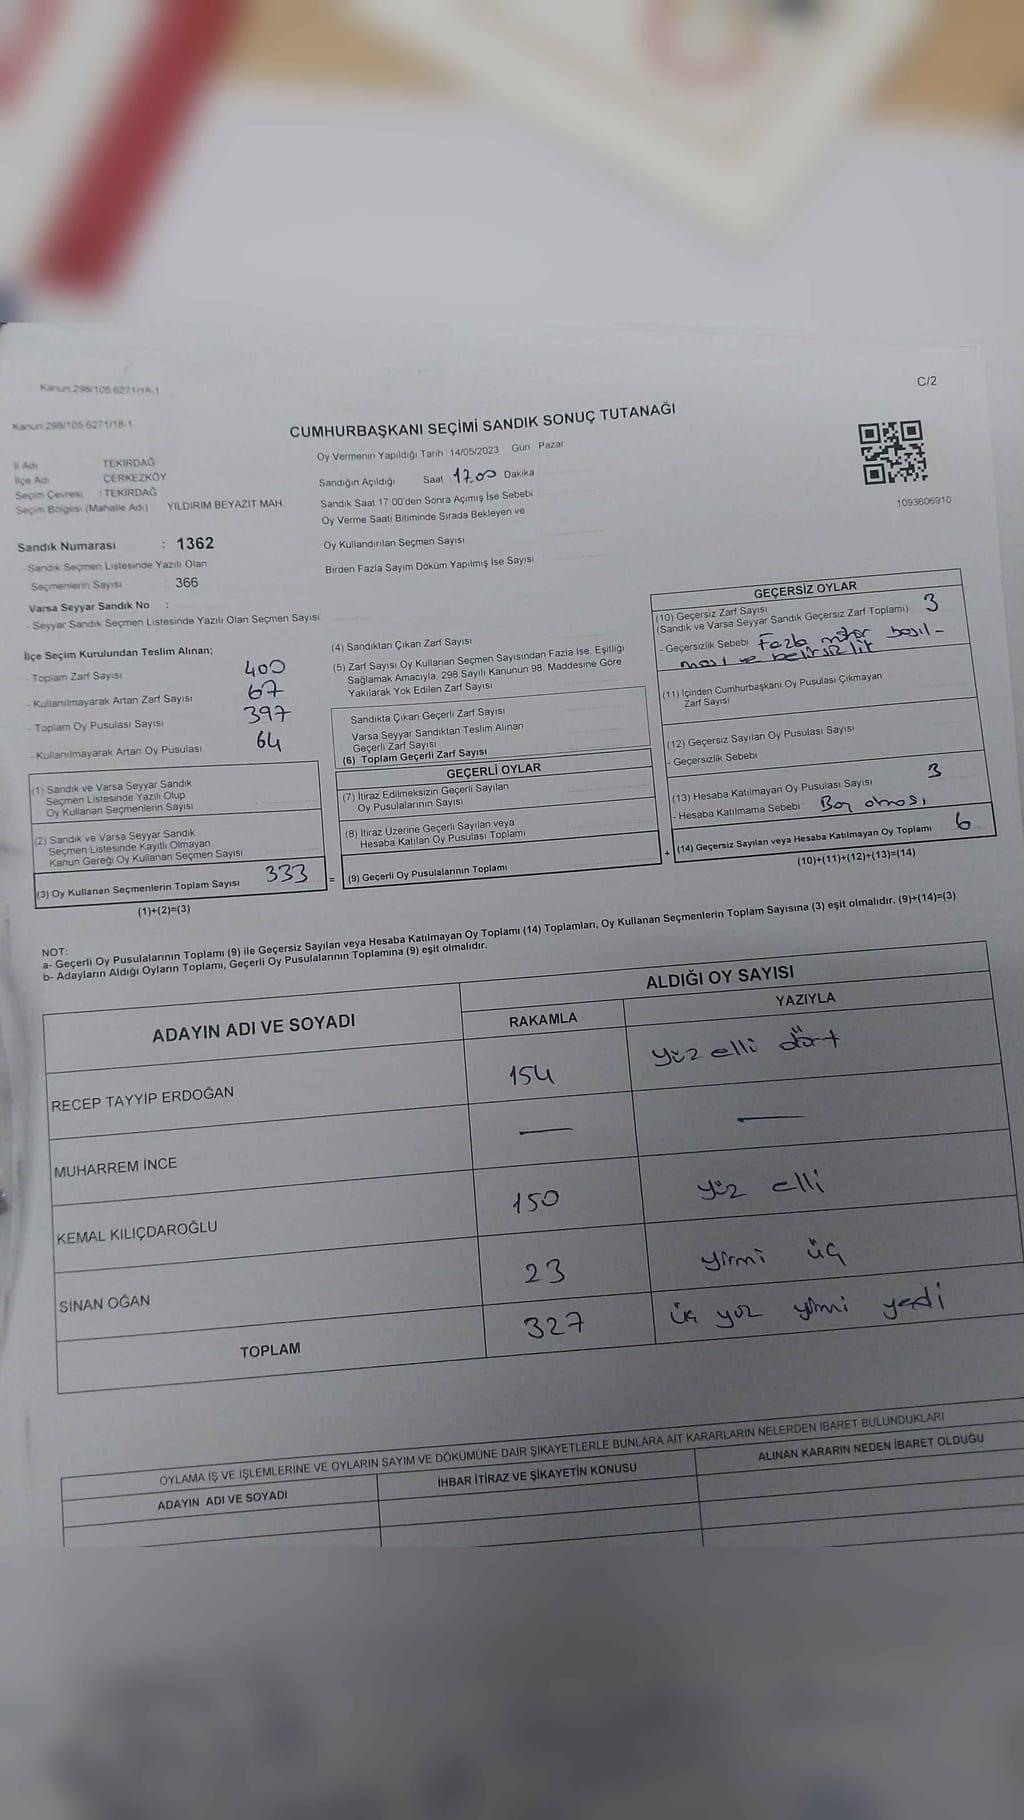 Kanun:298/105:6271/18-1
C/2
Kanun:298/105:6271/18-1
CUMHURBAŞKANI SEÇİMİ SANDIK SONUÇ TUTANAĞI
İl Adı TEKİRDAĞ
İlçe Adı ÇERKEZKÖY
Seçim Çevresi : TEKİRDAĞ
Seçim Bölgesi (Mahalle Adı) YILDIRIM BEYAZIT MAH.
Sandık Numarası : 1362
- Sandık Seçmen Listesinde Yazılı Olan
Seçmenlerin Sayısı : 366
Varsa Seyyar Sandık No :
- Seyyar Sandık Seçmen Listesinde Yazılı Olan Seçmen Sayısı
Oy Vermenin Yapıldığı Tarih 14/05/2023 Gün Pazar
Sandığın Açıldığı Saat 17.00 Dakika
Sandık Saat 17:00'den Sonra Açımış İse Sebebi
Oy Verme Saati Bitiminde Sırada Bekleyen ve
Oy Kullandırılan Seçmen Sayısı
Birden Fazla Sayım Döküm Yapılmış İse Sayısı
1093606910
İlçe Seçim Kurulundan Teslim Alınan;
- Toplam Zarf Sayısı 400
- Kullanılmayarak Artan Zarf Sayısı 67
- Toplam Oy Pusulası Sayısı 397
- Kullanılmayarak Artan Oy Pusulası 64
(1) Sandık ve Varsa Seyyar Sandık
Seçmen Listesinde Yazılı Olup
Oy Kullanan Seçmenlerin Sayısı
(2) Sandık ve Varsa Seyyar Sandık
Seçmen Listesinde Kayıtlı Olmayan
Kanun Gereği Oy Kullanan Seçmen Sayısı
(3) Oy Kullanan Seçmenlerin Toplam Sayısı 333
(1)+(2)=(3)
(4) Sandıktan Çıkan Zarf Sayısı
(5) Zarf Sayısı Oy Kullanan Seçmen Sayısından Fazla İse, Eşitliği
Sağlamak Amacıyla, 298 Sayılı Kanunun 98. Maddesine Göre
Yakılarak Yok Edilen Zarf Sayısı
Sandıkta Çıkan Geçerli Zarf Sayısı
Varsa Seyyar Sandıktan Teslim Alınan
Geçerli Zarf Sayısı
(6) Toplam Geçerli Zarf Sayısı
GEÇERLİ OYLAR
(7) İtiraz Edilmeksizin Geçerli Sayılan
Oy Pusulalarının Sayısı
(8) İtiraz Üzerine Geçerli Sayılan veya
Hesaba Katılan Oy Pusulası Toplamı
= (9) Geçerli Oy Pusulalarının Toplamı
GEÇERSİZ OYLAR
(10) Geçersiz Zarf Sayısı
(Sandık ve Varsa Seyyar Sandık Geçersiz Zarf Toplamı) 3
- Geçersizlik Sebebi Fazla mühür basıl-
ması ve belirsizlik
(11) İçinden Cumhurbaşkanı Oy Pusulası Çıkmayan
Zarf Sayısı
(12) Geçersiz Sayılan Oy Pusulası Sayısı
- Geçersizlik Sebebi
(13) Hesaba Katılmayan Oy Pusulası Sayısı 3
- Hesaba Katılmama Sebebi Boş olması
+ (14) Geçersiz Sayılan veya Hesaba Katılmayan Oy Toplamı 6
(10)+(11)+(12)+(13)=(14)
NOT:
a- Geçerli Oy Pusulalarının Toplamı (9) ile Geçersiz Sayılan veya Hesaba Katılmayan Oy Toplamı (14) Toplamları, Oy Kullanan Seçmenlerin Toplam Sayısına (3) eşit olmalıdır. (9)+(14)=(3)
b- Adayların Aldığı Oyların Toplamı, Geçerli Oy Pusulalarının Toplamına (9) eşit olmalıdır.
ADAYIN ADI VE SOYADI
ALDIĞI OY SAYISI
RAKAMLA YAZIYLA
RECEP TAYYİP ERDOĞAN 154 yüz elli dört
MUHARREM İNCE — —
KEMAL KILIÇDAROĞLU 150 yüz elli
SİNAN OĞAN 23 yirmi üç
TOPLAM 327 üç yüz yirmi yedi
OYLAMA İŞ VE İŞLEMLERİNE VE OYLARIN SAYIM VE DÖKÜMÜNE DAİR ŞİKAYETLERLE BUNLARA AİT KARARLARIN NELERDEN İBARET BULUNDUKLARI
ADAYIN ADI VE SOYADI İHBAR İTİRAZ VE ŞİKAYETİN KONUSU ALINAN KARARIN NEDEN İBARET OLDUĞU